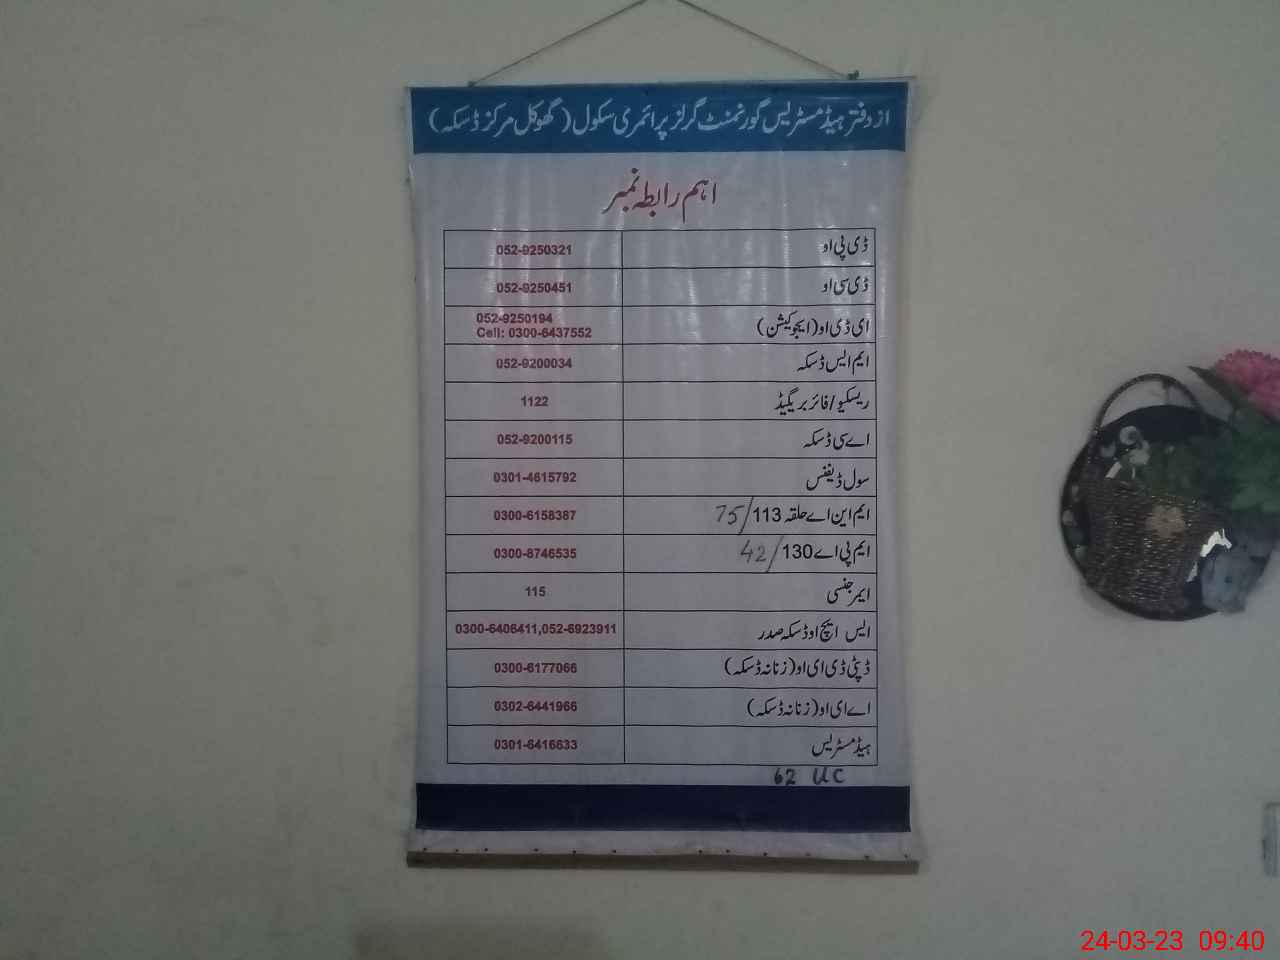 از دفتر ہیڈ مسٹریس گورنمنٹ گرلز پرائمری سکول (گھوکل مرکز ڈسکہ)
اہم رابطہ نمبر
ڈی پی او 052-9250321
ڈی سی او 052-9250451
ای ڈی او (ایجوکیشن) 052-9250194
Cell: 0300-6437552
ایم ایس ڈسکہ 052-9200034
ریسکیو/فائر بریگیڈ 1122
اے سی ڈسکہ 052-9200115
سول ڈیفنس 0301-4615792
ایم این اے حلقہ 113/75 0300-6158387
ایم پی اے 130/42 0300-8746535
ایمرجنسی 115
ایس ایچ او ڈسکہ صدر 0300-6406411,052-6923911
ڈپٹی ڈی ای او (زنانہ ڈسکہ) 0300-6177066
اے ای او (زنانہ ڈسکہ) 0302-6441966
ہیڈ مسٹریس 0301-6416633
62 UC
24-03-23 09:40